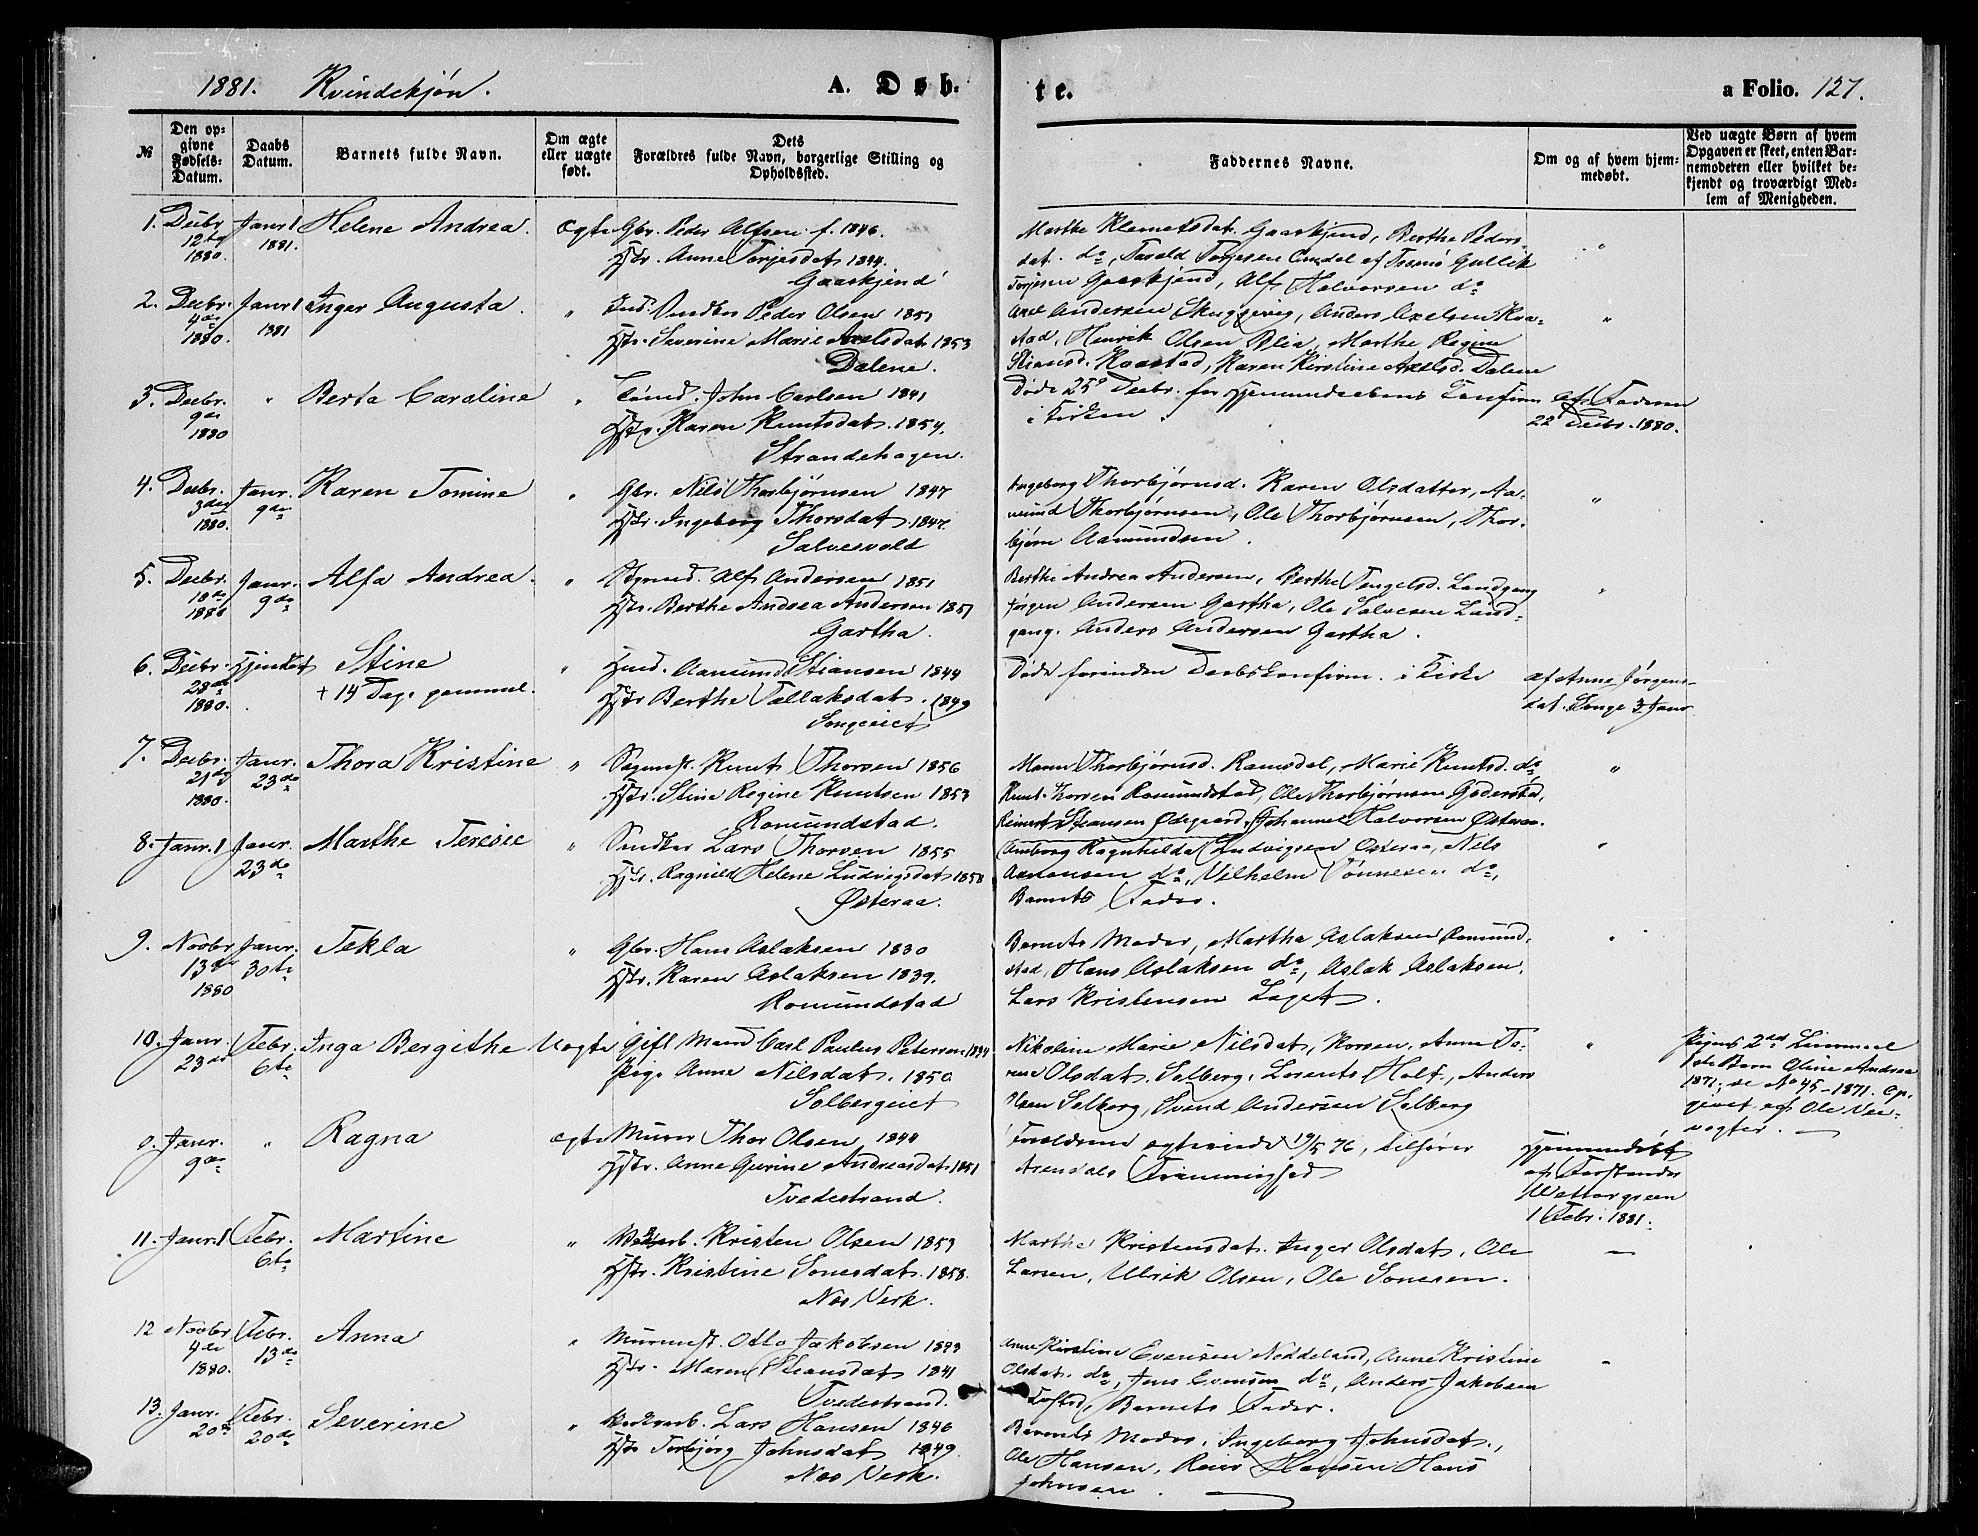 1881. Kvindekjøn. A. Døb-
te. a Folio. 127.
№
Den op-
givne
Fødsels-
Datum.
Daabs
Datum.
Barnets fulde Navn.
Om ægte
eller uægte
født.
Dets
Forældres fulde Navn, borgerlige Stilling og
Opholdssted.
Faddernes Navne.
Om og af hvem hjem-
medøbt.
Ved uægte Børn af hvem
Opgaven er skeet, enten Bar-
nemoderen eller hvilket be-
kjendt og troværdigt Med-
lem af Menigheden.
1. Decbr. Janr 1 Helene Andrea. Ægte Gbr. Peder Alfsen f. 1846.
12te 1881. Hstr. Anne Torjesdat. 1844.
1880. Gaaskjend
Marthe Klemetsdat. Gaaskjend, Berthe Peders-
dat. do, Tarald Torjesen af Tromø Gullik
Torjesen Gaaskjend, Alf Halvorsen do
2. Decbr. Janr 1 Inger Augusta. " Ind. Peder Olsen 1851
4de 1881 Hstr. Severine Marie Axelsdat. 1853
1880. Dalene.
Axel Andersen Skuggevig, Anders Axelsen Kva-
stad, Henrik Olsen Blia, Marthe Regine
Stiansd. Kvastad, Karen Kirstine Axelsd. Dalene
3. Decbr. " Berta Caroline " Tømd. John Carlsen 1841
9de Hstr. Karen Knutsdat. 1854.
1880 Strandehagen.
Døde 25de Decbr. før Hjemmedaabens Confirm.
i Kirken
af Faderen
22 Decbr. 1880.
4. Decbr. Janr. Karen Tomine " Gbr. Nils Thorbjørnsen 1847
3die 9de Hstr. Ingeborg Thorsdat. 1847.
1880. Salvesvold
Ingeborg Thorbjørnsd. Karen Olsdatter, Aa-
mund Thorbjørnsen, Ole Thorbjørnsen, Thor-
bjørn Aamundsen.
5. Decbr. Janr. Alfa Andrea. " Alf Andersen 1851
18de 9de Hstr. Berthe Andrea Andersen 1857
1880 Gartha.
Berthe Andrea Andersen, Berthe Tengelsd. Landgang
Jørgen Andersen Gartha, Ole Salvesen Land-
gang. Anders Andersen Gartha.
6. Decbr. Hjemdøbt Stine " Hmd. Aamund Stiansen 1844
28de + 14 Dage gammel. Hstr Berthe Tallaksdat. 1849
1880. Songeeiet
Døde forinden Daabskonfirm. i Kirke
af Anne Jørgens-
dat. Songe 3 Janr.
7. Decbr. Janr. Thora Kristine " Sagmst. Knut Thorsen 1856
21de 23de Hstr. Stine Regine Knutsen 1853
1880. Romundstad.
Maren Thorbjørnsd. Ramsdal, Marie Knutsd. do
Knut Thorsen Romundstad, Ole Thorbjørnsen Goderstad,
Reinert Stiansen Ødegaard, Johanne Halvorsen Østeraa.
8. Janr. 1 Janr. Marthe Teresie " Smed Lars Thorsen 1855
23de Hstr. Ragnild Helene Ludvigsdat. 1858
Østeraa.
Ragnhilda Ludvigsen Østeraa, Nels
Aslaksen do, Vilhelm Tønnesen do,
Barnets Fader.
9. Novbr Janr. Tekla " Gbr. Hans Aslaksen 1830
13de 30te Hstr. Karen Aslaksen 1839.
1880 Romundstad
Barnets Moder, Martha Aslaksen Romund-
stad, Hans Aslaksen do, Aslak Aslaksen.
Lars Kristensen Laget.
10. Janr. Febr. Inga Bergithe Uægte Gift Mand Carl Paulus Petersen 1834
23de 6te Pige Anne Nilsdat. 1850
Solbergeiet
Nikoline Marie Nilsdat, Korsen, Anne Ta-
rene Olsdat. Solberg. Lorents Holt, Anders
Olsen Solberg, Svend Andersen Solberg
Pigens 2det Leiermaal
1ste Barn Oline Andrea
1871, se No 45 - 1871. Op-
givet af Ole Vei-
vogter. —
0. Janr. " Ragna Ægte Murer Thor Olsen 1844
9de Hstr. Anne Gurine Andreasdat. 1851
Tvedestrand.
Forældrene ægteviede 19/5 76, tilhører
Arendals Frimenighed
Hjemmedøbt
af Forstander
Wettergreen
1 Febr. 1881.
11. Janr. 1 Febr. Martine " Kristen Olsen 1853
6te Hstr. Kristine Sonesdat. 1858.
Næs Verk.
Marthe Kristensdat. Inger Olsdat. Ole
Larsen, Ulrik Olsen, Ole Sonesen.
—
12 Novbr Febr. Anna " Murmst. Otto Jakobsen 1843
4de 13de Hstr. Maren Stiansdat. 1841
1880. Tvedestrand.
Anne Kirstine Evensen Neddeland, Anne Kristine
Olsdat. do, Jens Evensen do, Anders Jakobsen
Tofted, Barnets Fader.
13. Janr. Febr. Severine " Verksarb. Lars Hansen 1846
20de 20de Hstr Torbjørg Johnsdat. 1849.
Næs Verk.
Barnets Moder. Ingeborg Johnsdat.,
Ole Hansen, Reier Hansen Hans
Johnsen.